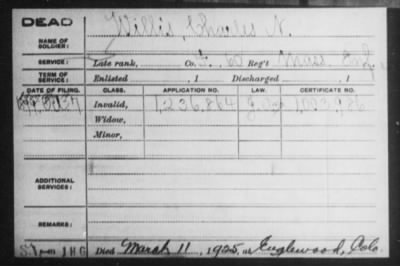 DEAD
NAME OF SOLDIER: Willis, Charles N.
SERVICE: Late rank, Co. 60 Reg't Mass. Inf.
TERM OF SERVICE: Enlisted , 1 Discharged , 1
DATE OF FILING. CLASS. APPLICATION NO. LAW. CERTIFICATE NO.
Invalid, 1,236,864
Widow,
Minor,
ADDITIONAL SERVICES:
REMARKS:
Died March 11, 1925, at Englewood, Colo.